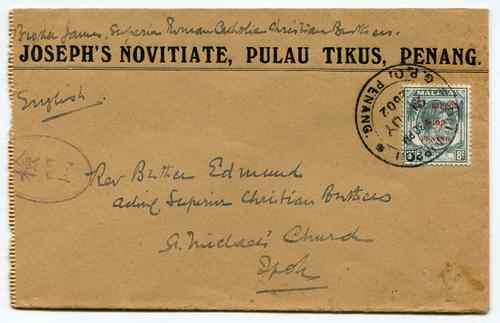 Brother James, Superior Roman Catholic Christian Brothers.
JOSEPH'S NOVITIATE, PULAU TIKUS, PENANG.
English.
G.P.O. PENANG
2602
MALAYA
DAI NIPPON
2602
PENANG
8c
検
Rev Brother Edmund
acting Superior Christian Brothers
St. Michael's Church
Ipoh